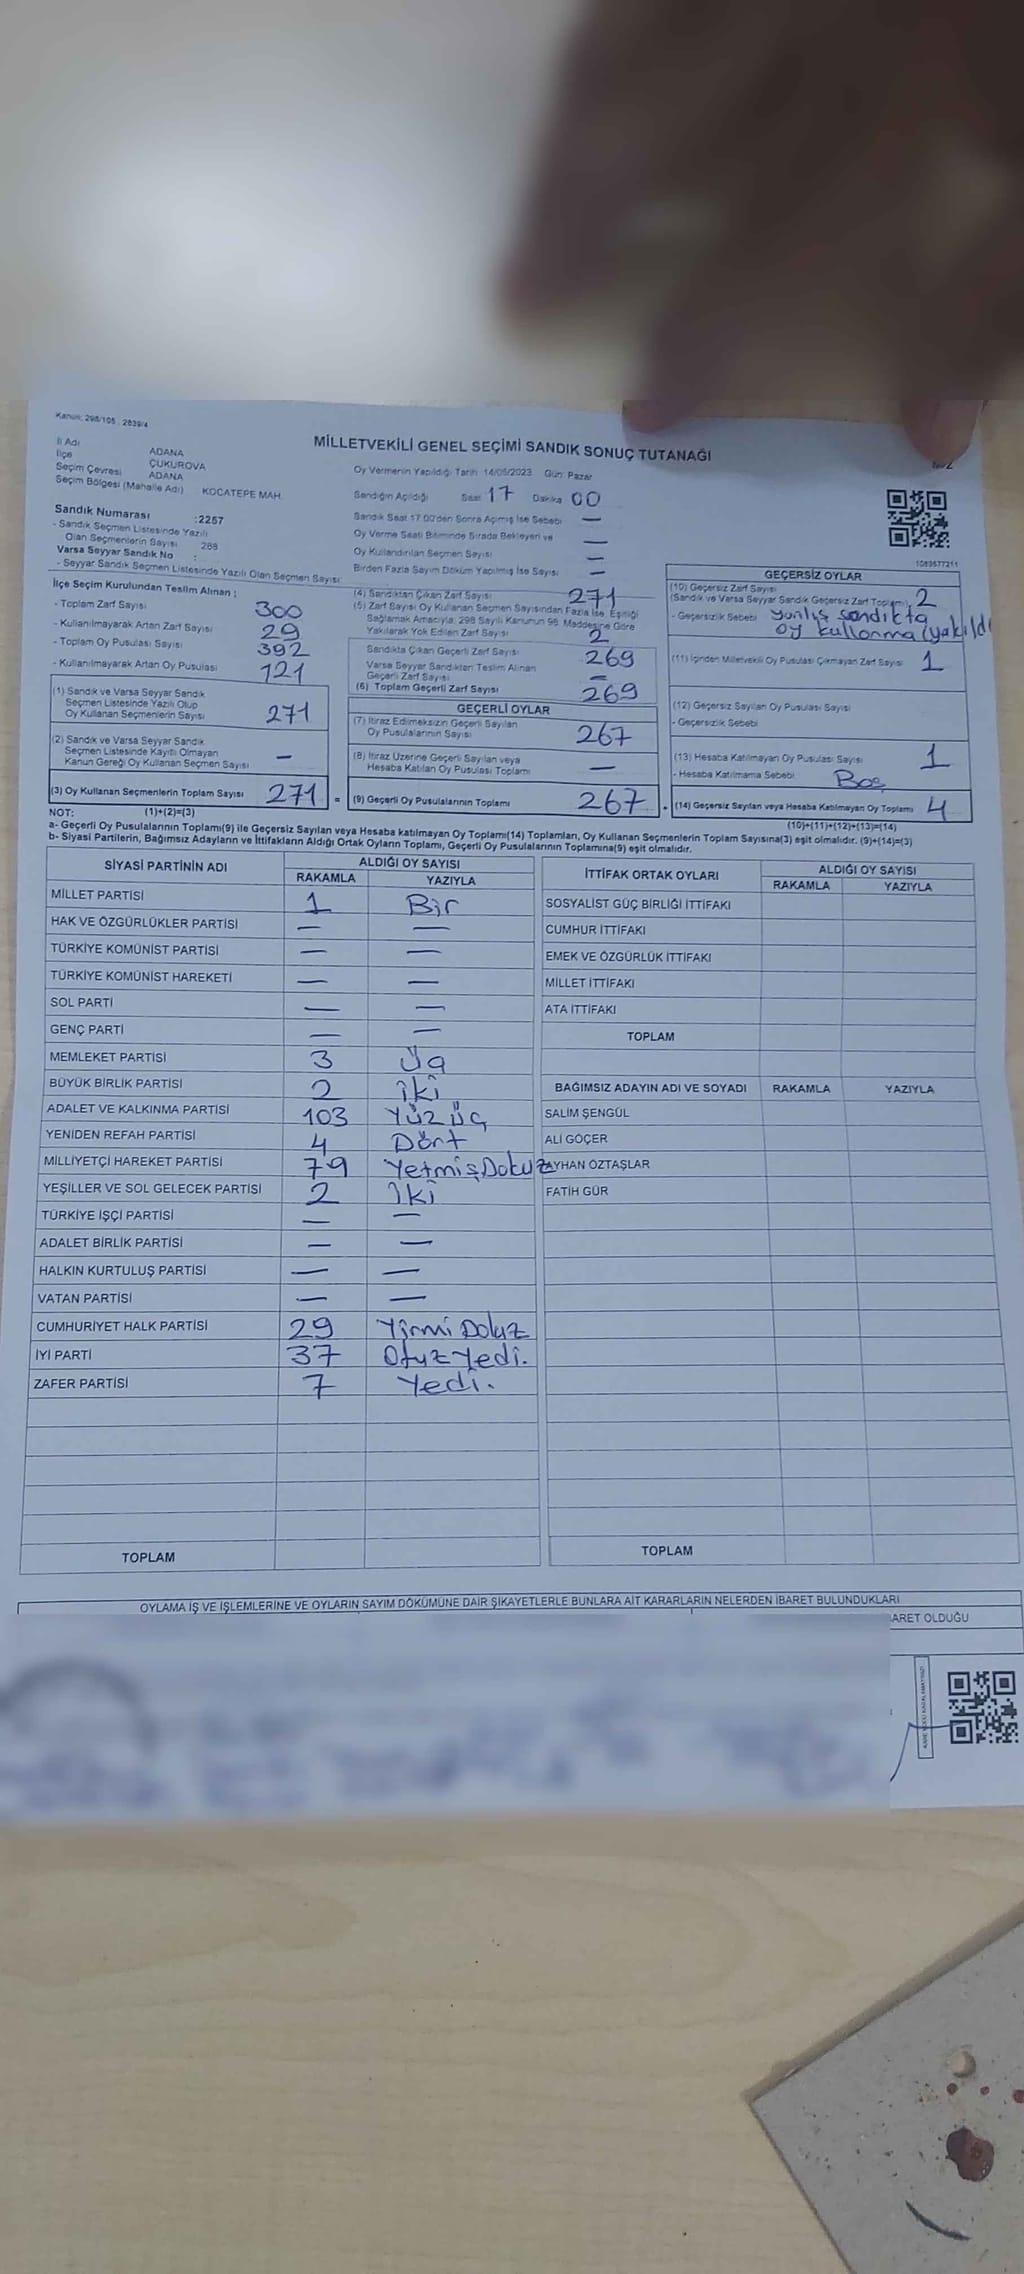 Kanun: 298/105, 2839/4
MİLLETVEKİLİ GENEL SEÇİMİ SANDIK SONUÇ TUTANAĞI
İl Adı ADANA
İlçe ÇUKUROVA
Seçim Çevresi ADANA
Seçim Bölgesi (Mahalle Adı) KOCATEPE MAH.
Oy Vermenin Yapıldığı Tarih 14/05/2023 Gün: Pazar
Sandığın Açıldığı Saat 17 Dakika 00
Sandık Saat 17:00'den Sonra Açılmış İse Sebebi —
Oy Verme Saati Bitiminde Sırada Bekleyen ve
Oy Kullandırılan Seçmen Sayısı —
Birden Fazla Sayım Döküm Yapılmış İse Sayısı —
Sandık Numarası :2257
- Sandık Seçmen Listesinde Yazılı
Olan Seçmenlerin Sayısı 288
Varsa Seyyar Sandık No :
- Seyyar Sandık Seçmen Listesinde Yazılı Olan Seçmen Sayısı:
1083577211
İlçe Seçim Kurulundan Teslim Alınan ;
- Toplam Zarf Sayısı 300
- Kullanılmayarak Artan Zarf Sayısı 29
- Toplam Oy Pusulası Sayısı 392
- Kullanılmayarak Artan Oy Pusulası 121
(1) Sandık ve Varsa Seyyar Sandık
Seçmen Listesinde Yazılı Olup
Oy Kullanan Seçmenlerin Sayısı 271
(2) Sandık ve Varsa Seyyar Sandık
Seçmen Listesinde Kayıtlı Olmayan
Kanun Gereği Oy Kullanan Seçmen Sayısı —
(3) Oy Kullanan Seçmenlerin Toplam Sayısı 271 =
(4) Sandıktan Çıkan Zarf Sayısı 271
(5) Zarf Sayısı Oy Kullanan Seçmen Sayısından Fazla İse, Eşitliği
Sağlamak Amacıyla, 298 Sayılı Kanunun 98. Maddesine Göre
Yakılarak Yok Edilen Zarf Sayısı 2
Sandıkta Çıkan Geçerli Zarf Sayısı 269
Varsa Seyyar Sandıktan Teslim Alınan
Geçerli Zarf Sayısı —
(6) Toplam Geçerli Zarf Sayısı 269
GEÇERLİ OYLAR
(7) İtiraz Edilmeksizin Geçerli Sayılan
Oy Pusulalarının Sayısı 267
(8) İtiraz Üzerine Geçerli Sayılan veya
Hesaba Katılan Oy Pusulası Toplamı —
(9) Geçerli Oy Pusulalarının Toplamı 267
GEÇERSİZ OYLAR
(10) Geçersiz Zarf Sayısı
(Sandık ve Varsa Seyyar Sandık Geçersiz Zarf Toplamı) 2
- Geçersizlik Sebebi yanlış sandıkta
oy kullanma (yakıldı
(11) İçinden Milletvekili Oy Pusulası Çıkmayan Zarf Sayısı 1
(12) Geçersiz Sayılan Oy Pusulası Sayısı
- Geçersizlik Sebebi
(13) Hesaba Katılmayan Oy Pusulası Sayısı 1
- Hesaba Katılmama Sebebi Boş
(14) Geçersiz Sayılan veya Hesaba Katılmayan Oy Toplamı 4
NOT: (1)+(2)=(3) (10)+(11)+(12)+(13)=(14)
a- Geçerli Oy Pusulalarının Toplamı(9) ile Geçersiz Sayılan veya Hesaba katılmayan Oy Toplamı(14) Toplamları, Oy Kullanan Seçmenlerin Toplam Sayısına(3) eşit olmalıdır. (9)+(14)=(3)
b- Siyasi Partilerin, Bağımsız Adayların ve İttifakların Aldığı Ortak Oyların Toplamı, Geçerli Oy Pusulalarının Toplamına(9) eşit olmalıdır.
SİYASİ PARTİNİN ADI ALDIĞI OY SAYISI
RAKAMLA YAZIYLA
MİLLET PARTİSİ 1 Bir
HAK VE ÖZGÜRLÜKLER PARTİSİ — —
TÜRKİYE KOMÜNİST PARTİSİ — —
TÜRKİYE KOMÜNİST HAREKETİ — —
SOL PARTİ — —
GENÇ PARTİ — —
MEMLEKET PARTİSİ 3 Üç
BÜYÜK BİRLİK PARTİSİ 2 iki
ADALET VE KALKINMA PARTİSİ 103 Yüz üç
YENİDEN REFAH PARTİSİ 4 Dört
MİLLİYETÇİ HAREKET PARTİSİ 79 Yetmiş Dokuz
YEŞİLLER VE SOL GELECEK PARTİSİ 2 İki
TÜRKİYE İŞÇİ PARTİSİ — —
ADALET BİRLİK PARTİSİ — —
HALKIN KURTULUŞ PARTİSİ — —
VATAN PARTİSİ — —
CUMHURİYET HALK PARTİSİ 29 Yirmi Dokuz
İYİ PARTİ 37 Otuz Yedi.
ZAFER PARTİSİ 7 Yedi.
TOPLAM
İTTİFAK ORTAK OYLARI ALDIĞI OY SAYISI
RAKAMLA YAZIYLA
SOSYALİST GÜÇ BİRLİĞİ İTTİFAKI
CUMHUR İTTİFAKI
EMEK VE ÖZGÜRLÜK İTTİFAKI
MİLLET İTTİFAKI
ATA İTTİFAKI
TOPLAM
BAĞIMSIZ ADAYIN ADI VE SOYADI RAKAMLA YAZIYLA
SALİM ŞENGÜL
ALİ GÖÇER
AYHAN ÖZTAŞLAR
FATİH GÜR
TOPLAM
OYLAMA İŞ VE İŞLEMLERİNE VE OYLARIN SAYIM DÖKÜMÜNE DAİR ŞİKAYETLERLE BUNLARA AİT KARARLARIN NELERDEN İBARET BULUNDUKLARI
ARET OLDUĞU